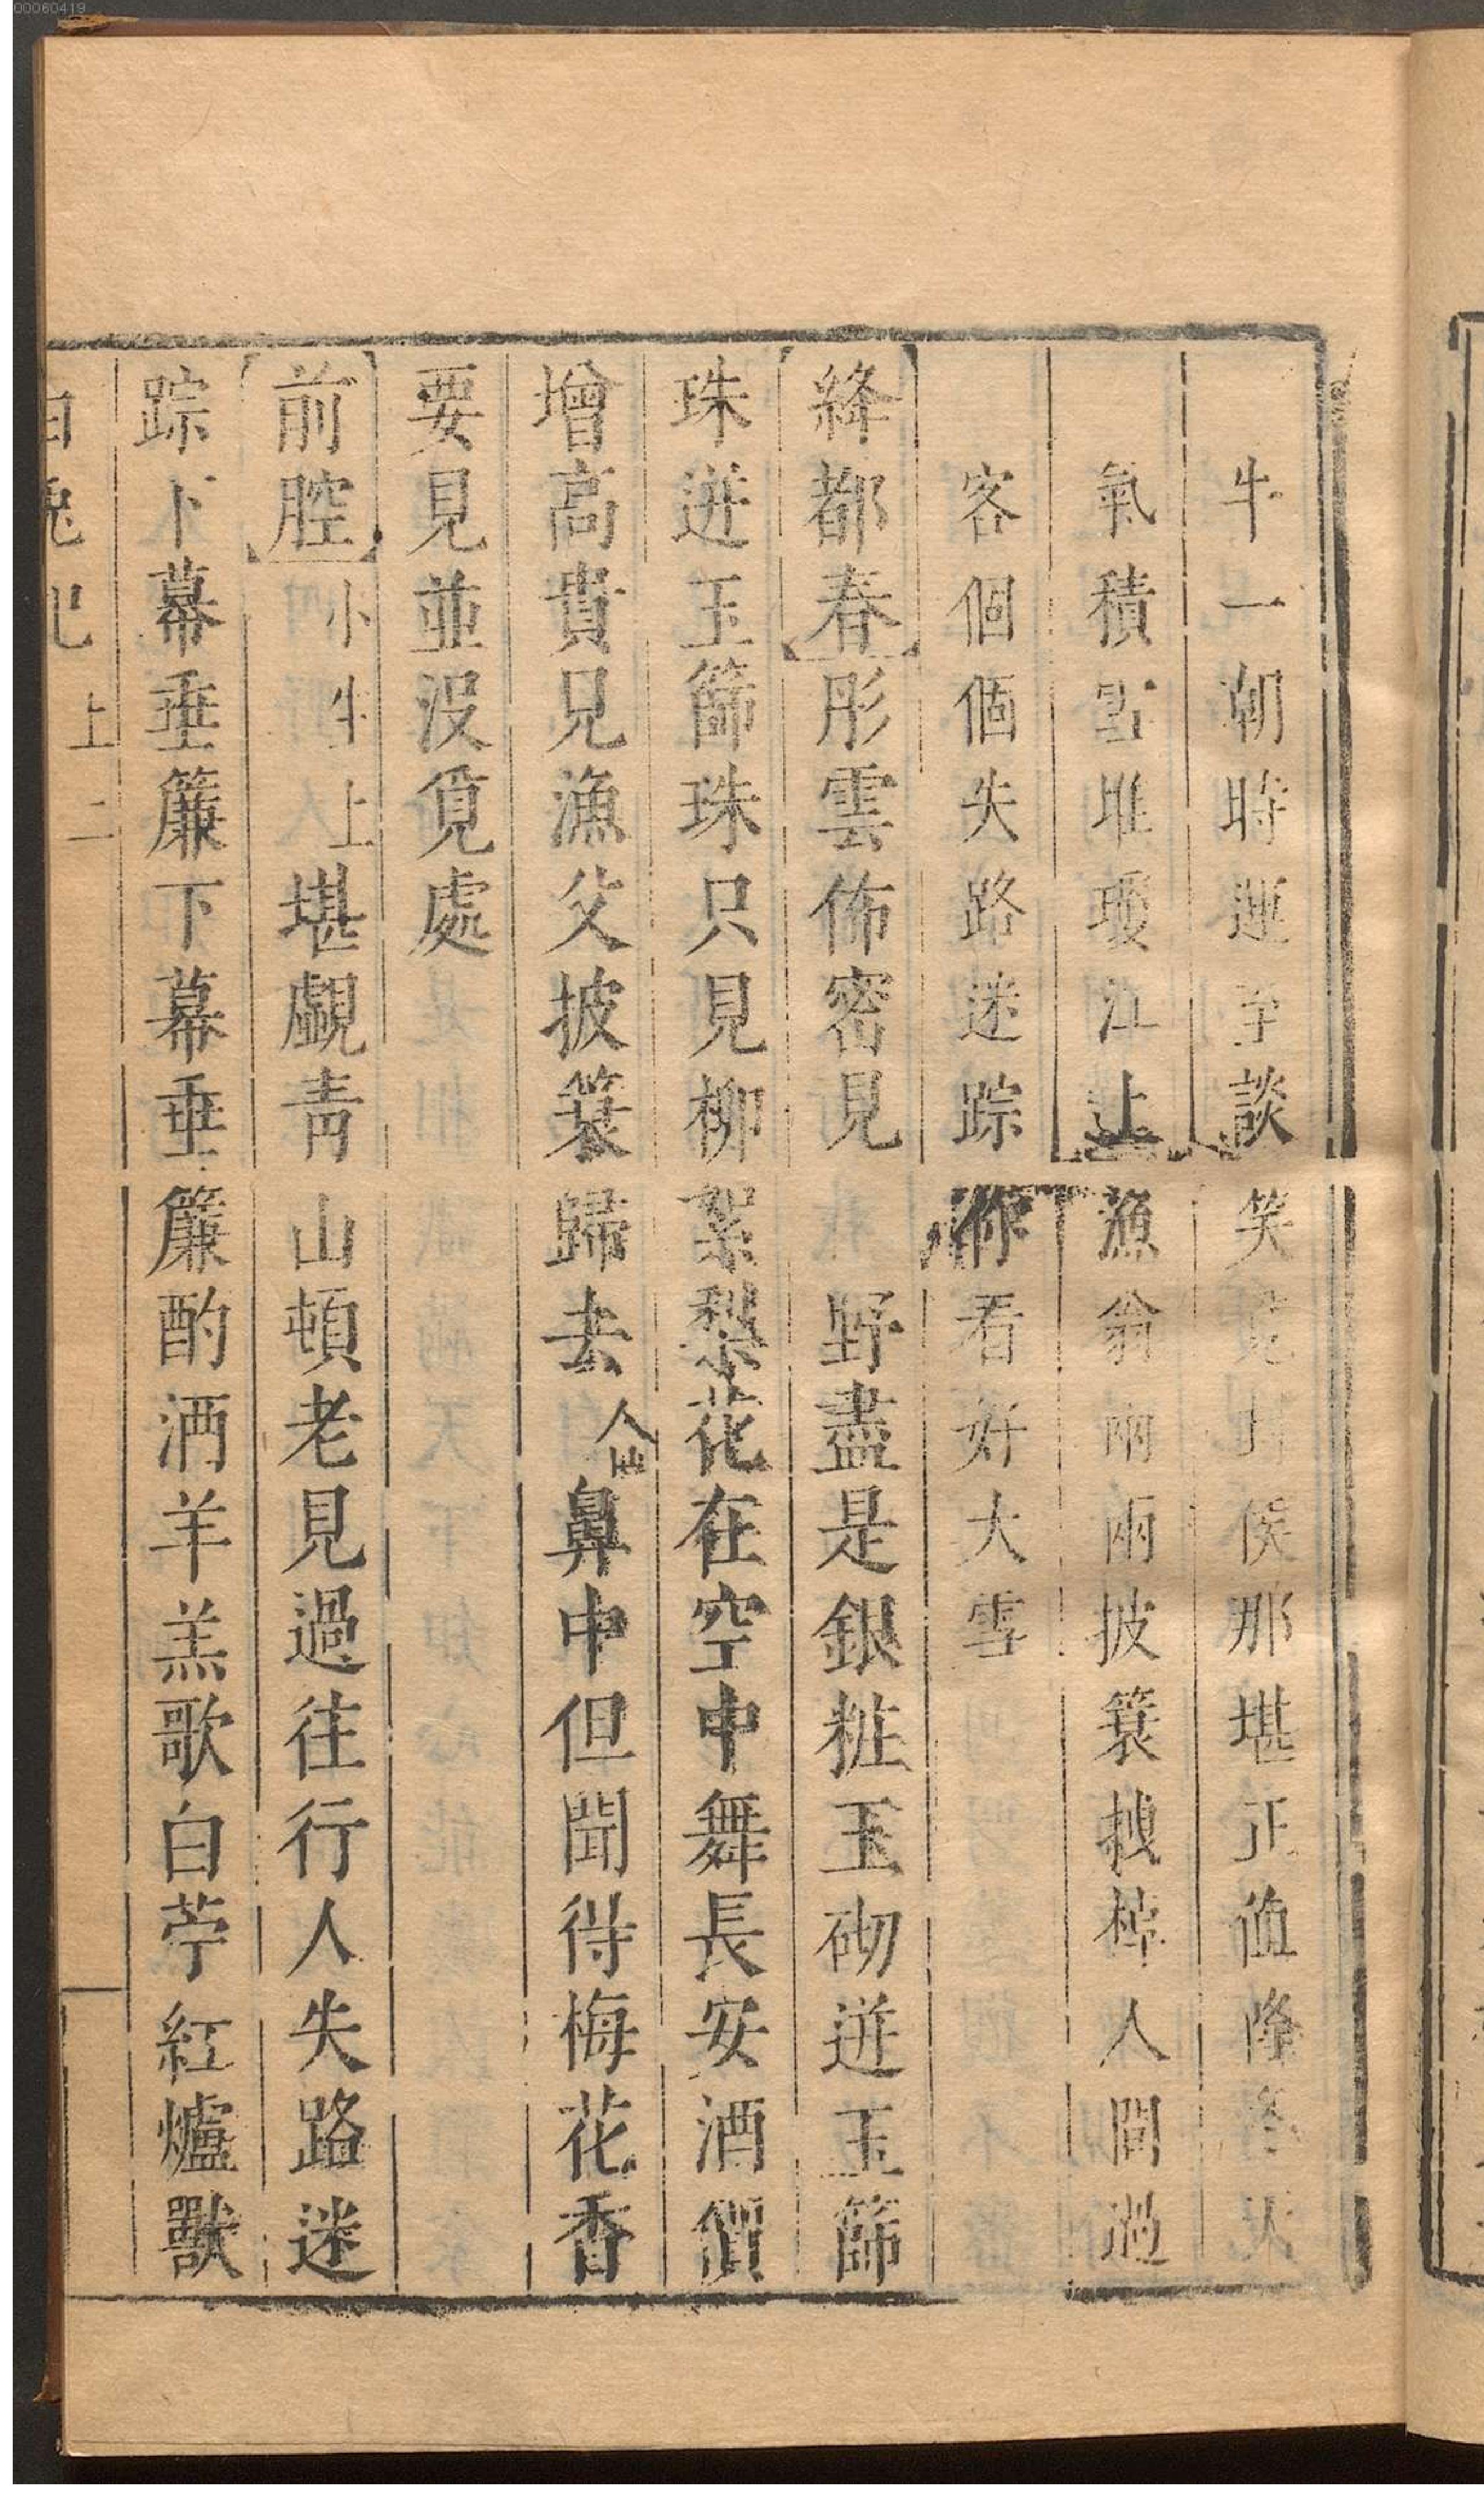 牛一朝時運至談笑覓封侯那堪正值隆冬天
氣積雪堆瓊江上漁翁兩兩披簑拽棹人間過
客個個失路迷踪你看好大雪
絳都春彤雲佈密見野盡是銀粧玉砌迸玉篩
珠迸玉篩珠只見柳絮梨花在空中舞長安酒價
增高貴兄漁父披簑歸去仙人鼻中但聞得梅花香
要見並没覓處
前腔小生上堪覷青山頓老見過往行人失路迷
踪下幕垂簾下幕垂簾酌酒羊羔歌白苧紅爐獸
白兔記上二
00060419